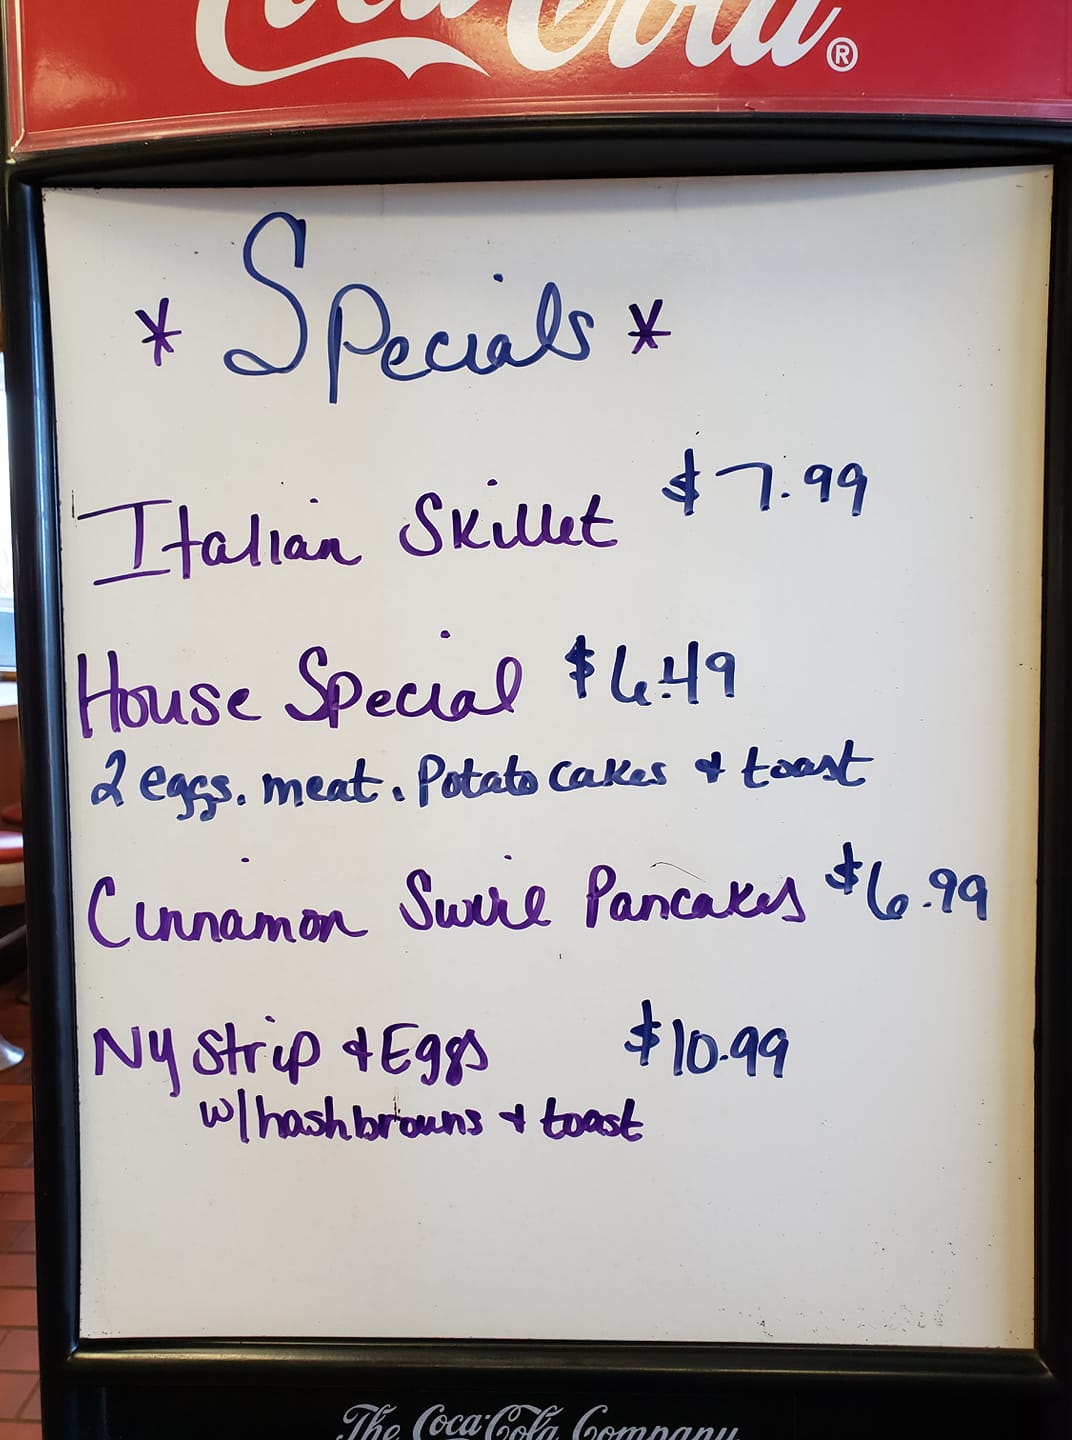 Coca-Cola®
* Specials *
Italian Skillet $7.99
House Special $6.49
2 eggs. meat. Potato cakes & toast
Cinnamon Swirl Pancakes $6.99
NY Strip & Eggs $10.99
w/hashbrowns & toast
The Coca-Cola Company